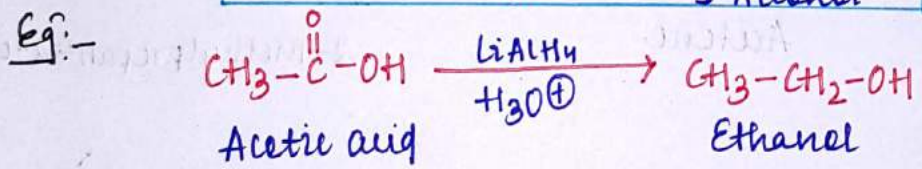 Eg:-
O
||
CH3-C-OH LiAlH4 → CH3-CH2-OH
H3O⊕
Acetic acid Ethanol